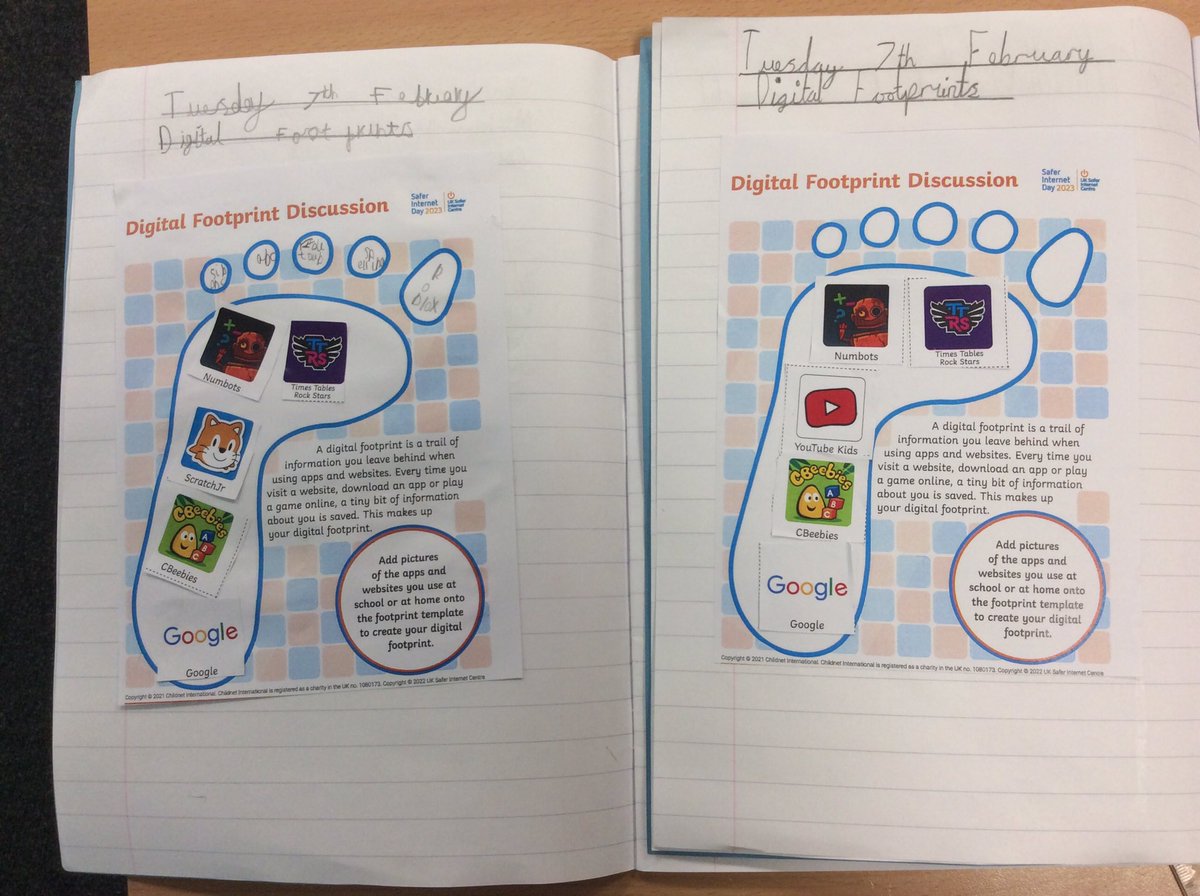 Tuesday 7th February
Digital Foot prints
Digital Footprint Discussion
Safer
Internet
Day 2023
UK Safer
Internet
Centre
abc
Numbots
TT
RS
Times Tables
Rock Stars
ScratchJr
CBeebies
A
B
C
CBeebies
Google
Google
A digital footprint is a trail of
information you leave behind when
using apps and websites. Every time you
visit a website, download an app or play
a game online, a tiny bit of information
about you is saved. This makes up
your digital footprint.
Add pictures
of the apps and
websites you use at
school or at home onto
the footprint template
to create your digital
footprint.
Copyright © 2021 Childnet International. Childnet International is registered as a charity in the UK no. 1080173. Copyright © 2022 UK Safer Internet Centre
Tuesday 7th February
Digital Footprints
Digital Footprint Discussion
Safer
Internet
Day 2023
UK Safer
Internet
Centre
Numbots
TT
RS
Times Tables
Rock Stars
YouTube Kids
CBeebies
A
B
C
CBeebies
Google
Google
A digital footprint is a trail of
information you leave behind when
using apps and websites. Every time you
visit a website, download an app or play
a game online, a tiny bit of information
about you is saved. This makes up
your digital footprint.
Add pictures
of the apps and
websites you use at
school or at home onto
the footprint template
to create your digital
footprint.
Copyright © 2021 Childnet International. Childnet International is registered as a charity in the UK no. 1080173. Copyright © 2022 UK Safer Internet Centre